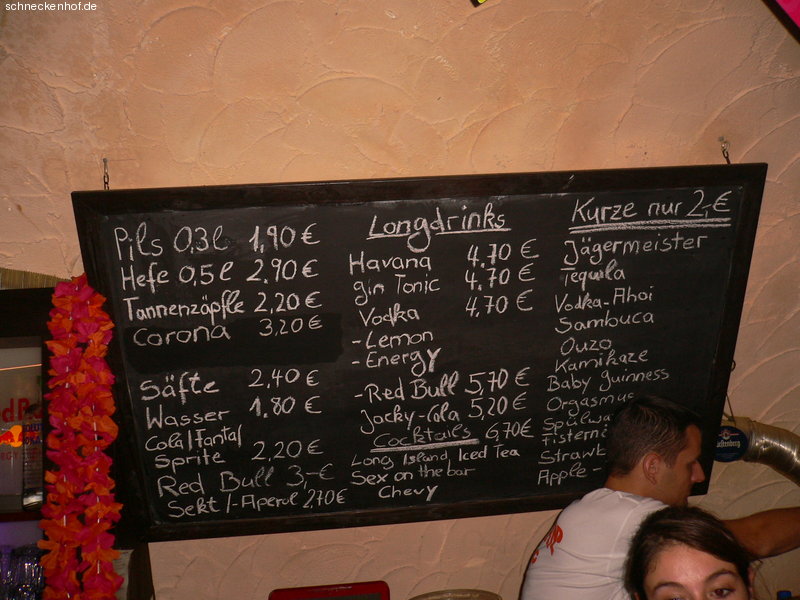 schneckenhof.de
Pils 0,3l 1,90 €
Hefe 0,5l 2,90 €
Tannenzäpfle 2,20 €
Corona 3,20 €
Säfte 2,40 €
Wasser 1.80 €
Cola/Fanta/
Sprite 2,20 €
Red Bull 3,-€
Sekt/-Aperol 2,70 €
Longdrinks
Havana 4,70 €
Gin Tonic 4,70 €
Vodka 4,70 €
-Lemon
-Energy
-Red Bull 5,70 €
Jacky-Cola 5,20 €
Cocktails 6,70€
Long Island Iced Tea
Sex on the bar
Chevy
Kurze nur 2,-€
Jägermeister
Tequila
Vodka-Ahoi
Sambuca
Ouzo
Kamikaze
Baby Guinness
Orgasmus
Apple-